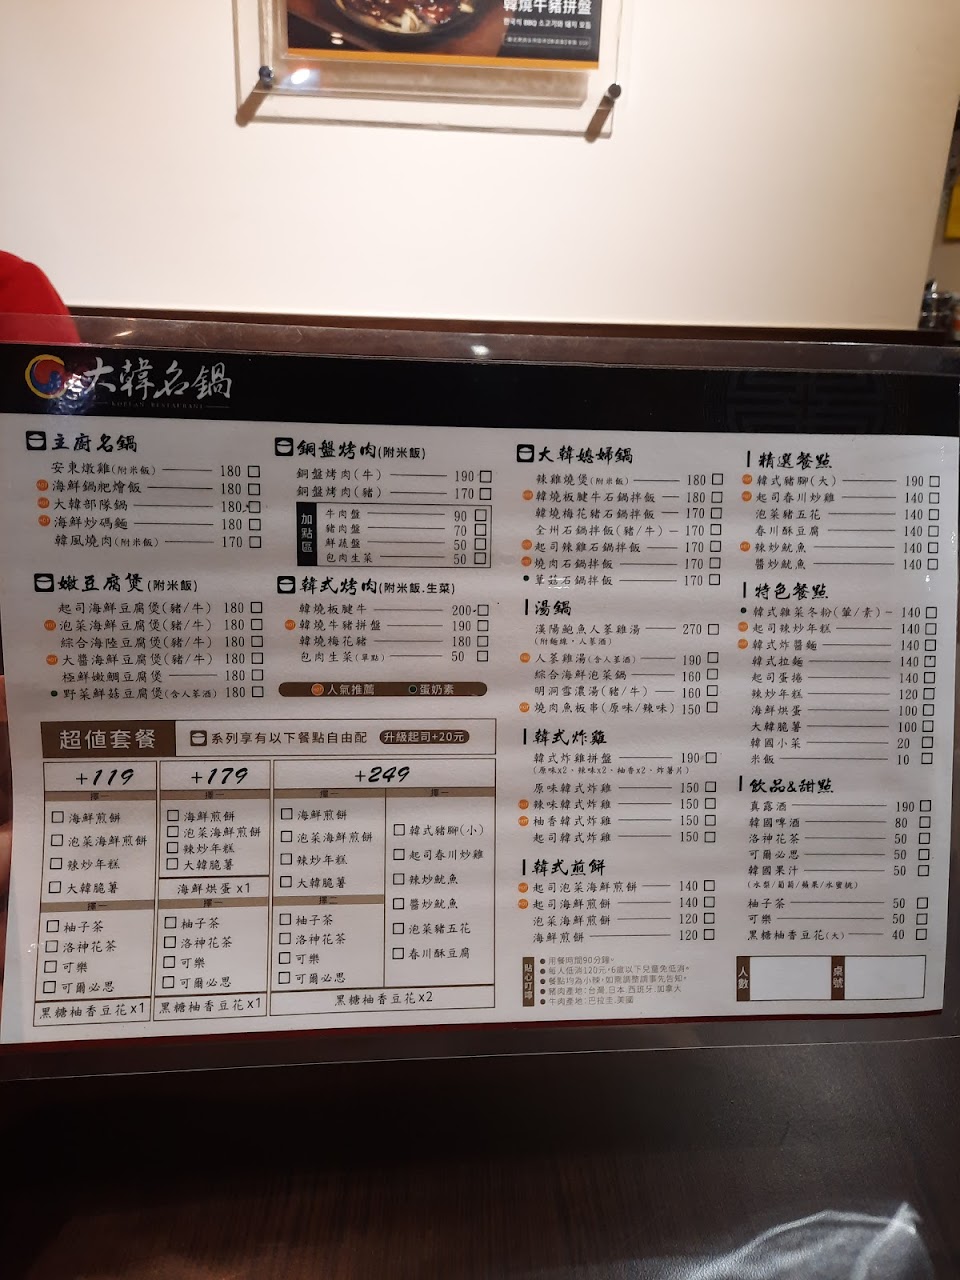 韓燒牛豬拼盤
大韓名鍋
KOREAN RESTAURANT
主廚名鍋
安東燉雞(附米飯) 180
海鮮鍋粑燴飯 180
大韓部隊鍋 180
海鮮炒碼麵 180
韓風燒肉(附米飯) 170
嫩豆腐煲(附米飯)
起司海鮮豆腐煲(豬/牛) 180
泡菜海鮮豆腐煲(豬/牛) 180
綜合海陸豆腐煲(豬/牛) 180
大醬海鮮豆腐煲(豬/牛) 180
極鮮嫩鯛豆腐煲 180
野菜鮮菇豆腐煲(含人蔘酒) 180
銅盤烤肉(附米飯)
銅盤烤肉(牛) 190
銅盤烤肉(豬) 170
加點區
牛肉盤 90
豬肉盤 70
鮮蔬盤 50
包肉生菜 50
韓式烤肉(附米飯.生菜)
韓燒板腱牛 200
韓燒牛豬拼盤 190
韓燒梅花豬 180
包肉生菜(單點) 50
人氣推薦 蛋奶素
超值套餐
系列享有以下餐點自由配 升級起司+20元
+119
擇一
海鮮煎餅
泡菜海鮮煎餅
辣炒年糕
大韓脆薯
擇一
柚子茶
洛神花茶
可樂
可爾必思
黑糖柚香豆花x1
+179
擇一
海鮮煎餅
泡菜海鮮煎餅
辣炒年糕
大韓脆薯
海鮮烘蛋x1
擇一
柚子茶
洛神花茶
可樂
可爾必思
黑糖柚香豆花x1
+249
擇一
海鮮煎餅
泡菜海鮮煎餅
辣炒年糕
大韓脆薯
擇二
柚子茶
洛神花茶
可樂
可爾必思
擇一
韓式豬腳(小)
起司春川炒雞
辣炒魷魚
醬炒魷魚
泡菜豬五花
春川酥豆腐
黑糖柚香豆花x2
大韓媳婦鍋
辣雞燒煲(附米飯) 180
韓燒板腱牛石鍋拌飯 180
韓燒梅花豬石鍋拌飯 170
全州石鍋拌飯(豬/牛) 170
起司辣雞石鍋拌飯 170
燒肉石鍋拌飯 170
蕈菇石鍋拌飯 170
湯鍋
漢陽鮑魚人蔘雞湯 270
(附麵線、人蔘酒)
人蔘雞湯(含人蔘酒) 190
綜合海鮮泡菜鍋 160
明洞雪濃湯(豬/牛) 160
燒肉魚板串(原味/辣味) 150
韓式炸雞
韓式炸雞拼盤 190
(原味x2、辣味x2、柚香x2、炸薯片)
原味韓式炸雞 150
辣味韓式炸雞 150
柚香韓式炸雞 150
起司韓式炸雞 150
韓式煎餅
起司泡菜海鮮煎餅 140
起司海鮮煎餅 140
泡菜海鮮煎餅 120
海鮮煎餅 120
貼心叮嚀
用餐時間90分鐘。
每人低消120元，6歲以下兒童免低消。
餐點均為小辣，如需調整請事先告知。
豬肉產地:台灣.日本.西班牙.加拿大
牛肉產地:巴拉圭.美國
精選餐點
韓式豬腳(大) 190
起司春川炒雞 140
泡菜豬五花 140
春川酥豆腐 140
辣炒魷魚 140
醬炒魷魚 140
特色餐點
韓式雜菜冬粉(葷/素) 140
起司辣炒年糕 140
韓式炸醬麵 140
韓式拉麵 140
起司蛋捲 140
辣炒年糕 120
海鮮烘蛋 100
大韓脆薯 100
韓國小菜 20
米飯 10
飲品&甜點
真露酒 190
韓國啤酒 80
洛神花茶 50
可爾必思 50
韓國果汁 50
(水梨/葡萄/蘋果/水蜜桃)
柚子茶 50
可樂 50
黑糖柚香豆花(大) 40
人數
桌號